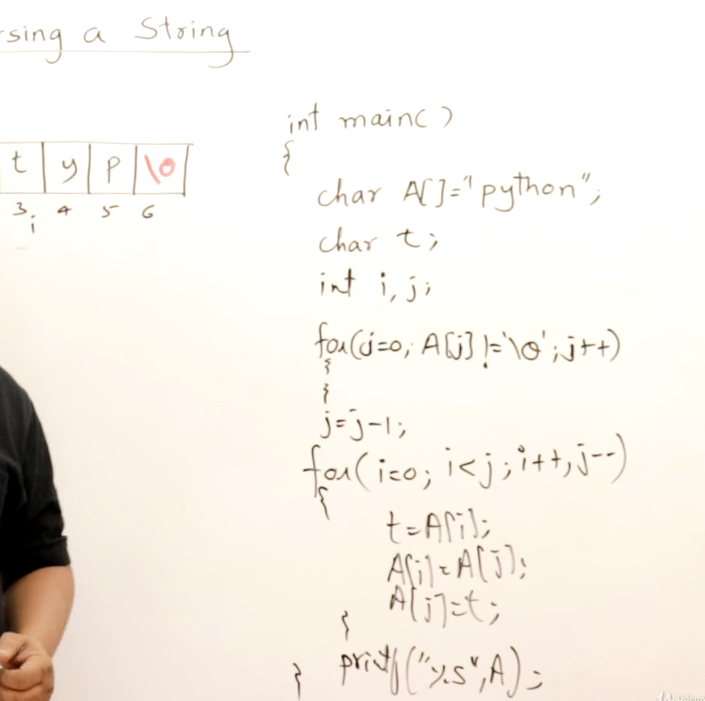 rsing a String
t y p \0
3 4 5 6
i
int main()
{
char A[]="python";
char t;
int i, j;
for(j=0; A[j]!='\0'; j++)
{
}
j=j-1;
for(i=0; i<j; i++, j--)
{
t=A[i];
A[i]=A[j];
A[j]=t;
}
printf("%s",A);
}